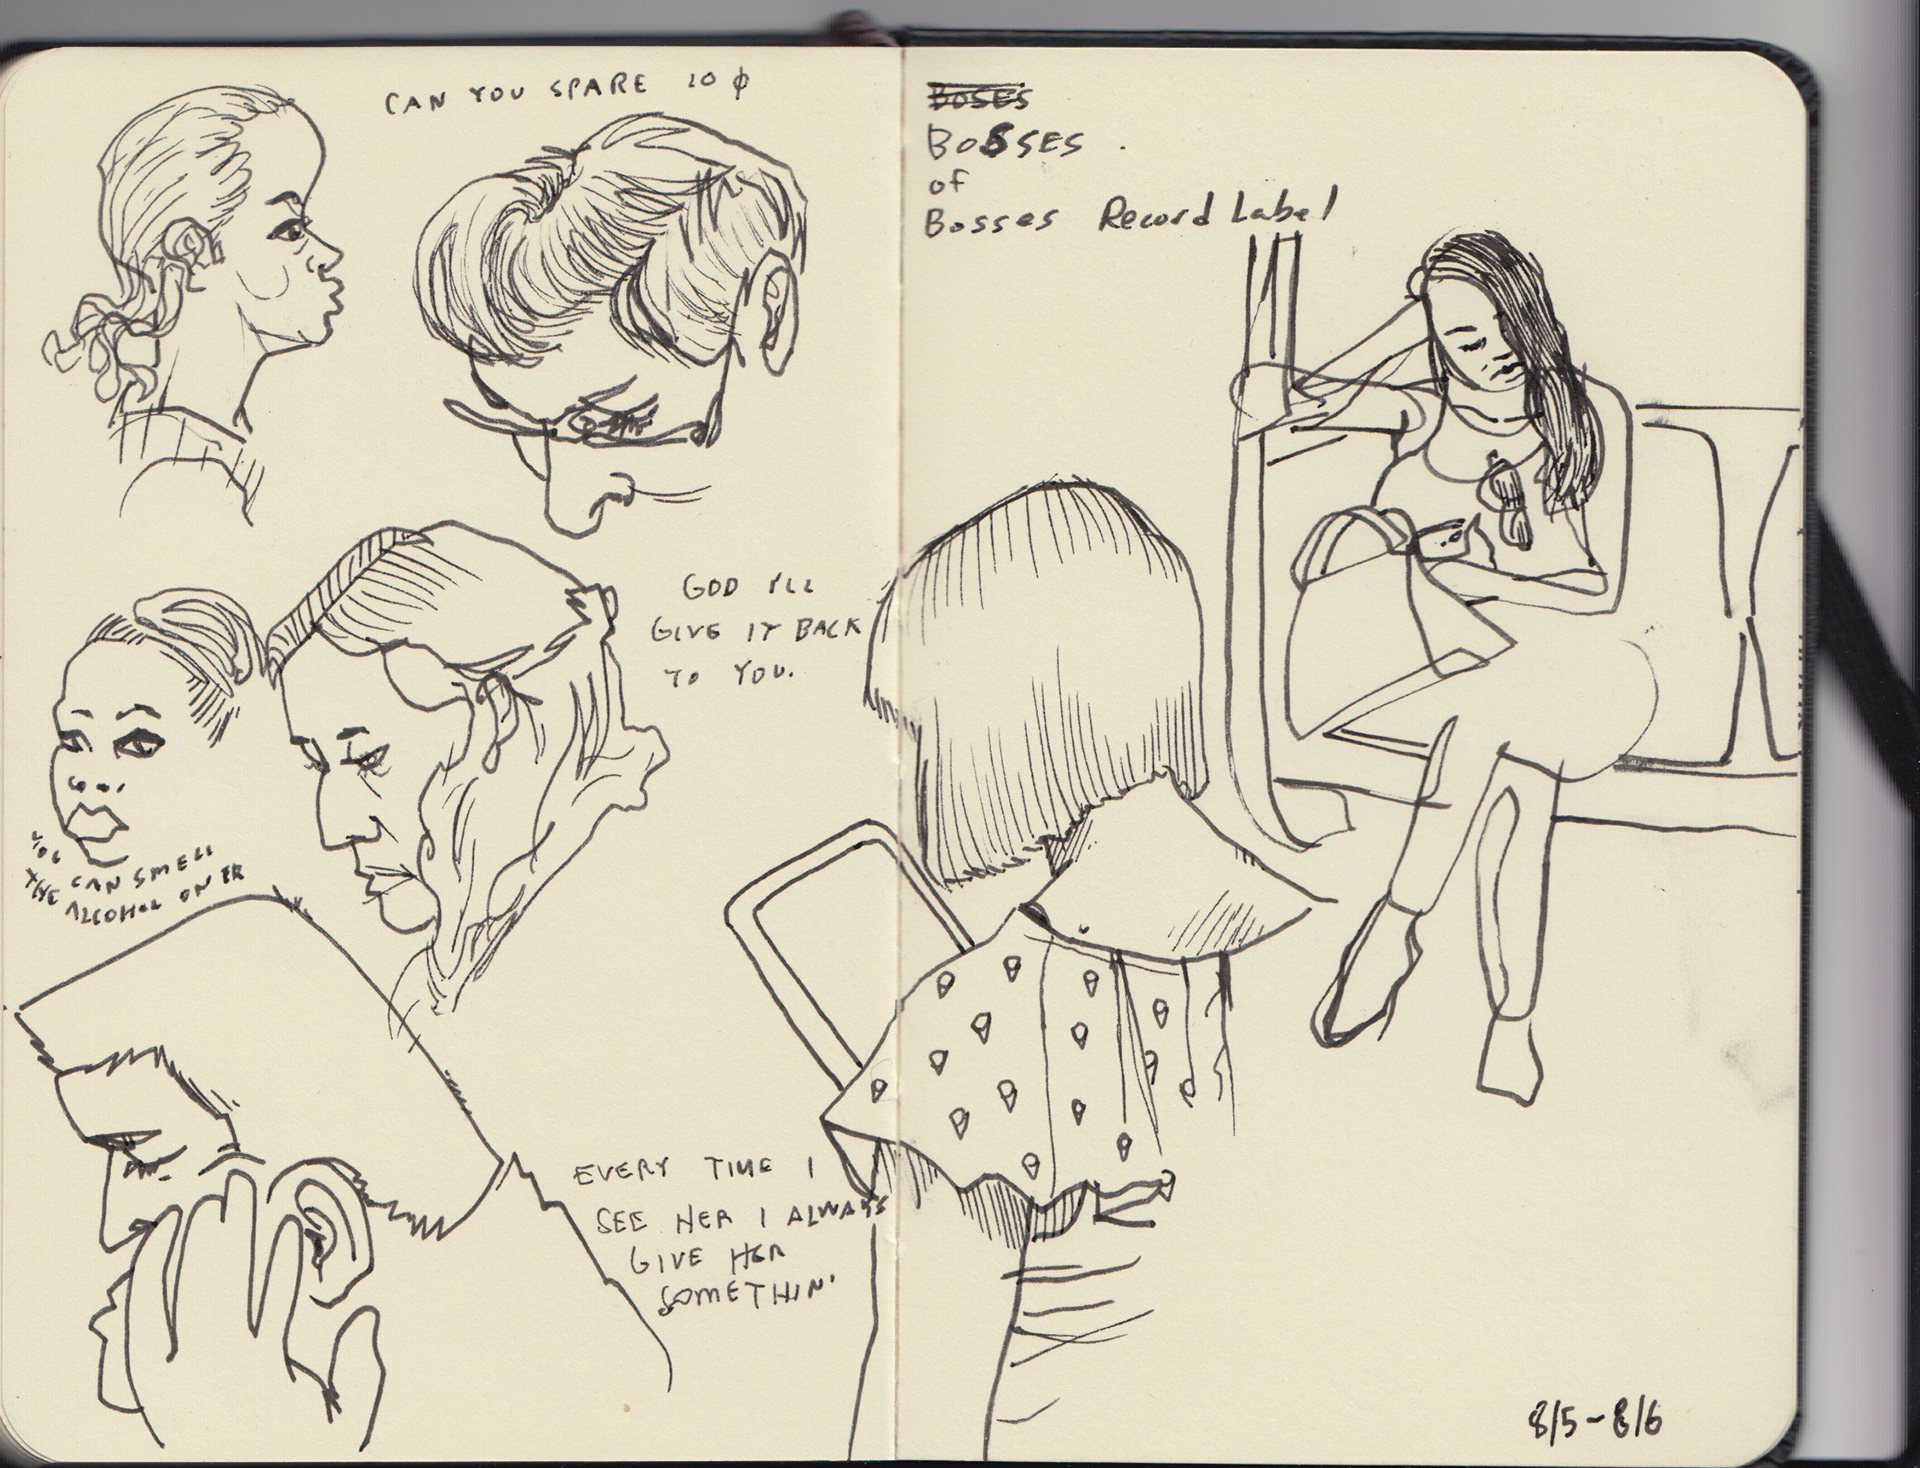 CAN YOU SPARE 10 ¢
GOD I'LL
GIVE IT BACK
TO YOU.
YOU CAN SMELL
THE ALCOHOL ON ER
EVERY TIME I
SEE HER I ALWAYS
GIVE HER
SOMETHIN'
BOSES
BOSSES .
of
Bosses Record Label
8/5-8/6